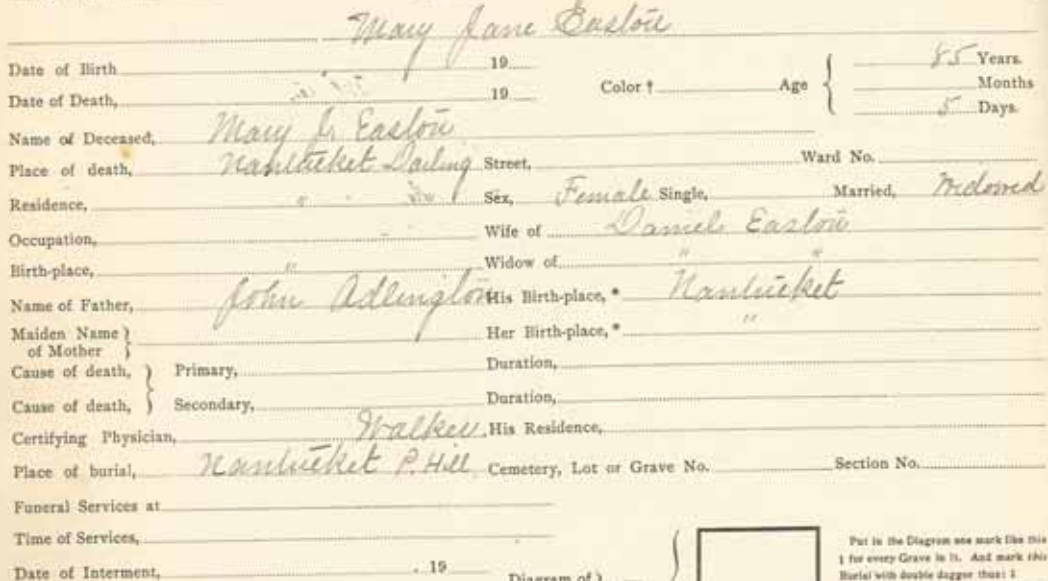 Mary Jane Easton
Date of Birth 19 Years. 85
Date of Death, 19 Color † Age Months
5 Days.
Name of Deceased, Mary J. Easton
Place of death, Nantucket Darling Street, Ward No.
Residence, " " Sex, Female Single, Married, Widowed
Occupation, Wife of Daniel Easton
Birth-place, " Widow of " "
Name of Father, John Adlington His Birth-place, * Nantucket
Maiden Name of Mother Her Birth-place, * "
Cause of death, Primary, Duration,
Cause of death, Secondary, Duration,
Certifying Physician, Walker His Residence,
Place of burial, Nantucket P. Hill Cemetery, Lot or Grave No. Section No.
Funeral Services at
Time of Services,
Date of Interment, 19 Diagram of
Put in the Diagram one mark like this
‡ for every Grave in it. And mark this
Burial with double dagger thus: ‡